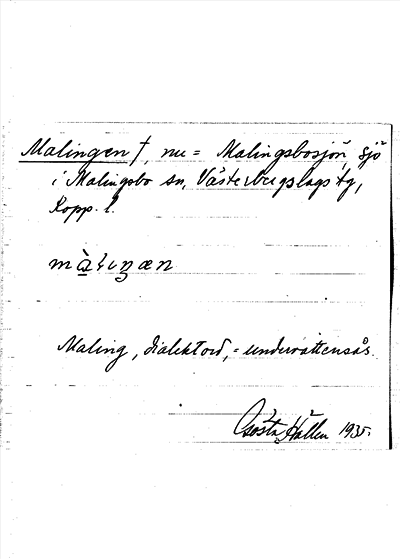 Malingen †, nu = Malingsbosjön, sjö
i Malingsbo sn, Västerbergslags tg,
Kopp. l.
màlıŋæn
Maling, dialektord, = undervattensås.
Gösta Hallén 1935.